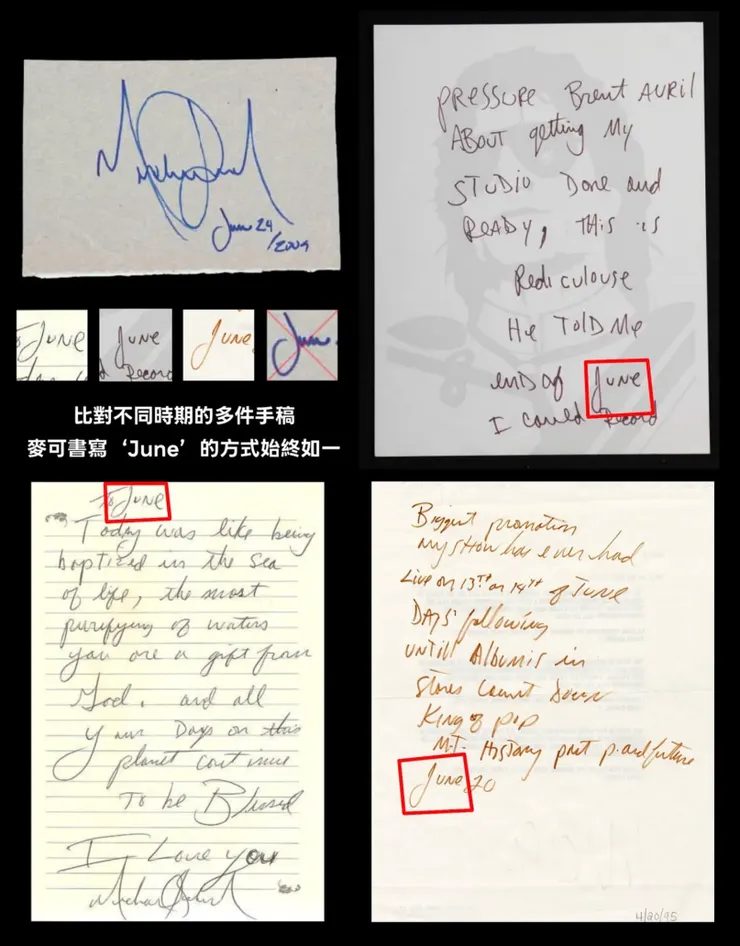 June 24
/2009
To JUNE
JUNE
Record
JUNE
June
比對不同時期的多件手稿
麥可書寫‘June’的方式始終如一
PRESSURE Brent AVRIL
ABOUT getting My
STUDIO Done and
READY, THIS is
Rediculouse
He TOLD Me
end of JUNE
I could Record
To JUNE
Today was like being
baptized in the sea
of life, the most
purifying of waters
you are a gift from
God. and all
your Days on this
planet continue
TO be Blessed
I Love you
Biggest promotion
my show has ever had
Live on 13TH or 14TH of JUNE
DAYS following
UNTILL Album is in
Stores Count Down
King of pop
M.J. History past p. and future
June 20
4/20/95